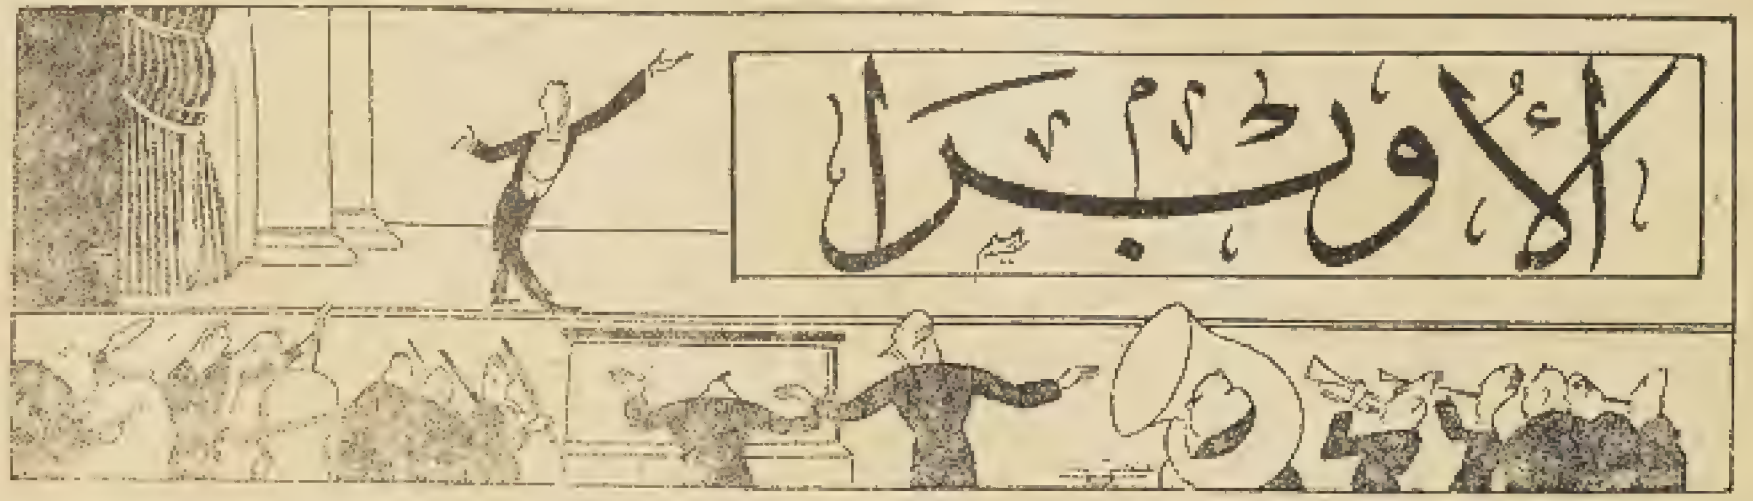 الأوبرا